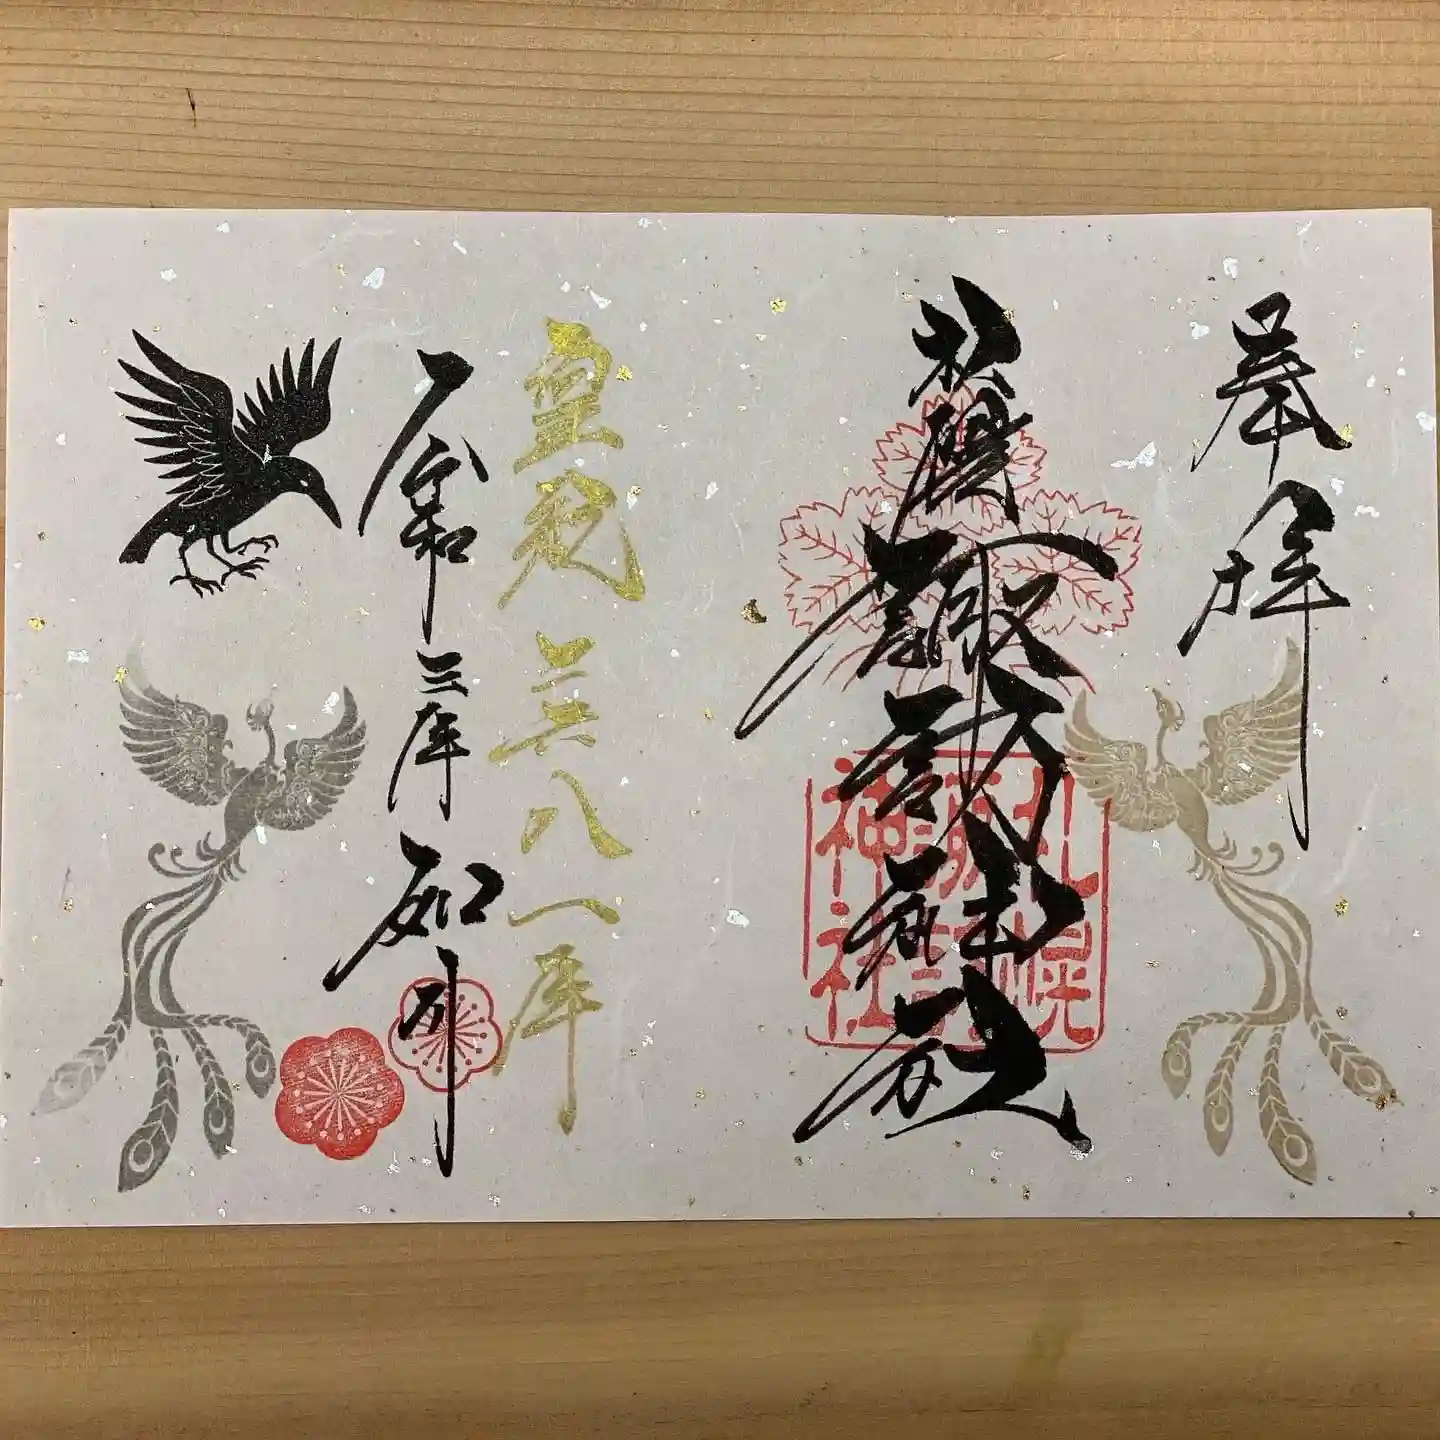 奉拝
札幌諏訪神社
札幌
諏訪
神社
皇紀二六八一年
令和三年如月